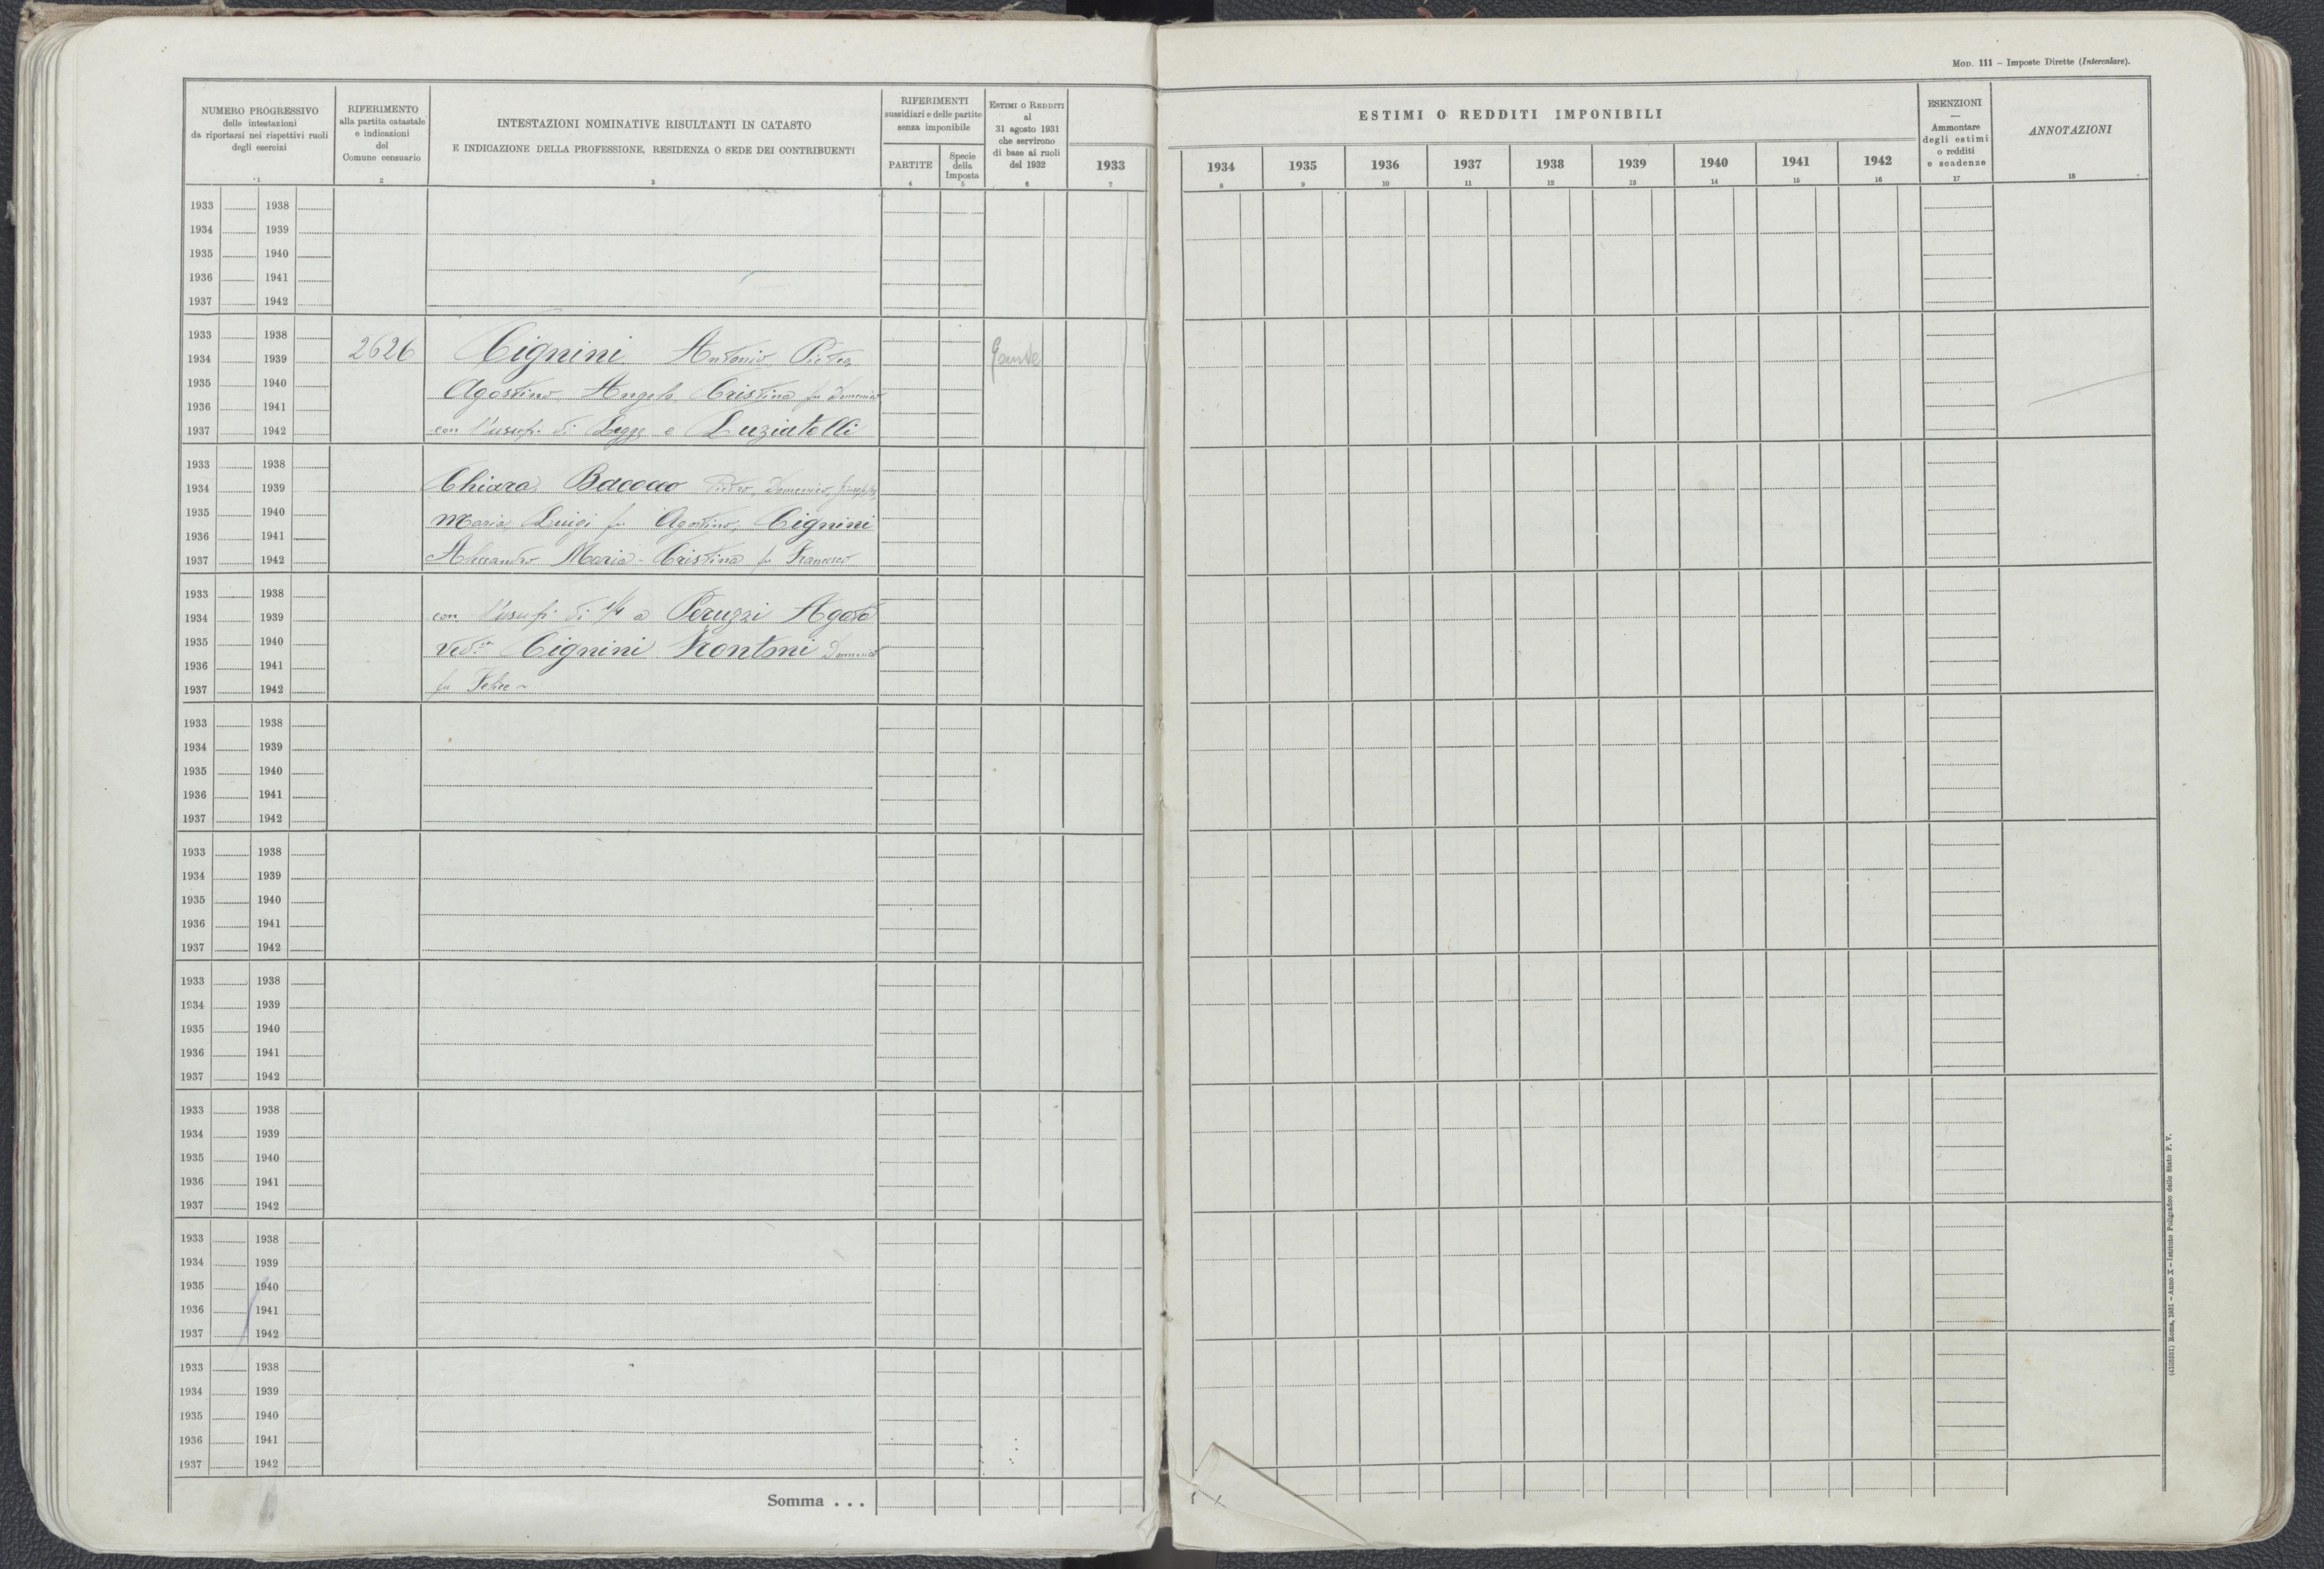 MOD. 111 – Imposte Dirette (Intercalare).
NUMERO PROGRESSIVO
delle intestazioni
da riportarsi nei rispettivi ruoli
degli esercizi
1
RIFERIMENTO
alla partita catastale
e indicazioni
del
Comune censuario
2
INTESTAZIONI NOMINATIVE RISULTANTI IN CATASTO
E INDICAZIONE DELLA PROFESSIONE, RESIDENZA O SEDE DEI CONTRIBUENTI
3
RIFERIMENTI
sussidiari e delle partite
senza imponibile
PARTITE
4
Specie
della
Imposta
5
ESTIMI O REDDITI
al
31 agosto 1931
che servirono
di base ai ruoli
del 1932
6
1933
7
ESTIMI O REDDITI IMPONIBILI
1934 1935 1936 1937 1938 1939 1940 1941 1942
8 9 10 11 12 13 14 15 16
ESENZIONI
—
Ammontare
degli estimi
o redditi
e scadenze
17
ANNOTAZIONI
18
1933 1938
1934 1939
1935 1940
1936 1941
1937 1942
1933 1938
1934 1939
1935 1940
1936 1941
1937 1942
2626
Cignini Antonio, Pietro,
Agostino, Angelo, Cristina fu Domenico
con l'usuf. di Legge a Luziatelli
1933 1938
1934 1939
1935 1940
1936 1941
1937 1942
Chiara, Bacocco Pietro, Domenico, Giuseppe,
Maria, Luigi fu Agostino, Cignini
Alessandro Maria-Cristina fu Francesco
1933 1938
1934 1939
1935 1940
1936 1941
1937 1942
con l'usuf. di 1/4 a Peruzzi Agata
Ved. Cignini Domenico
fu Felice ~
1933 1938
1934 1939
1935 1940
1936 1941
1937 1942
1933 1938
1934 1939
1935 1940
1936 1941
1937 1942
1933 1938
1934 1939
1935 1940
1936 1941
1937 1942
1933 1938
1934 1939
1935 1940
1936 1941
1937 1942
1933 1938
1934 1939
1935 1940
1936 1941
1937 1942
1933 1938
1934 1939
1935 1940
1936 1941
1937 1942
Somma . . .
Roma, 1931 – Anno X – Istituto Poligrafico dello Stato P. V.